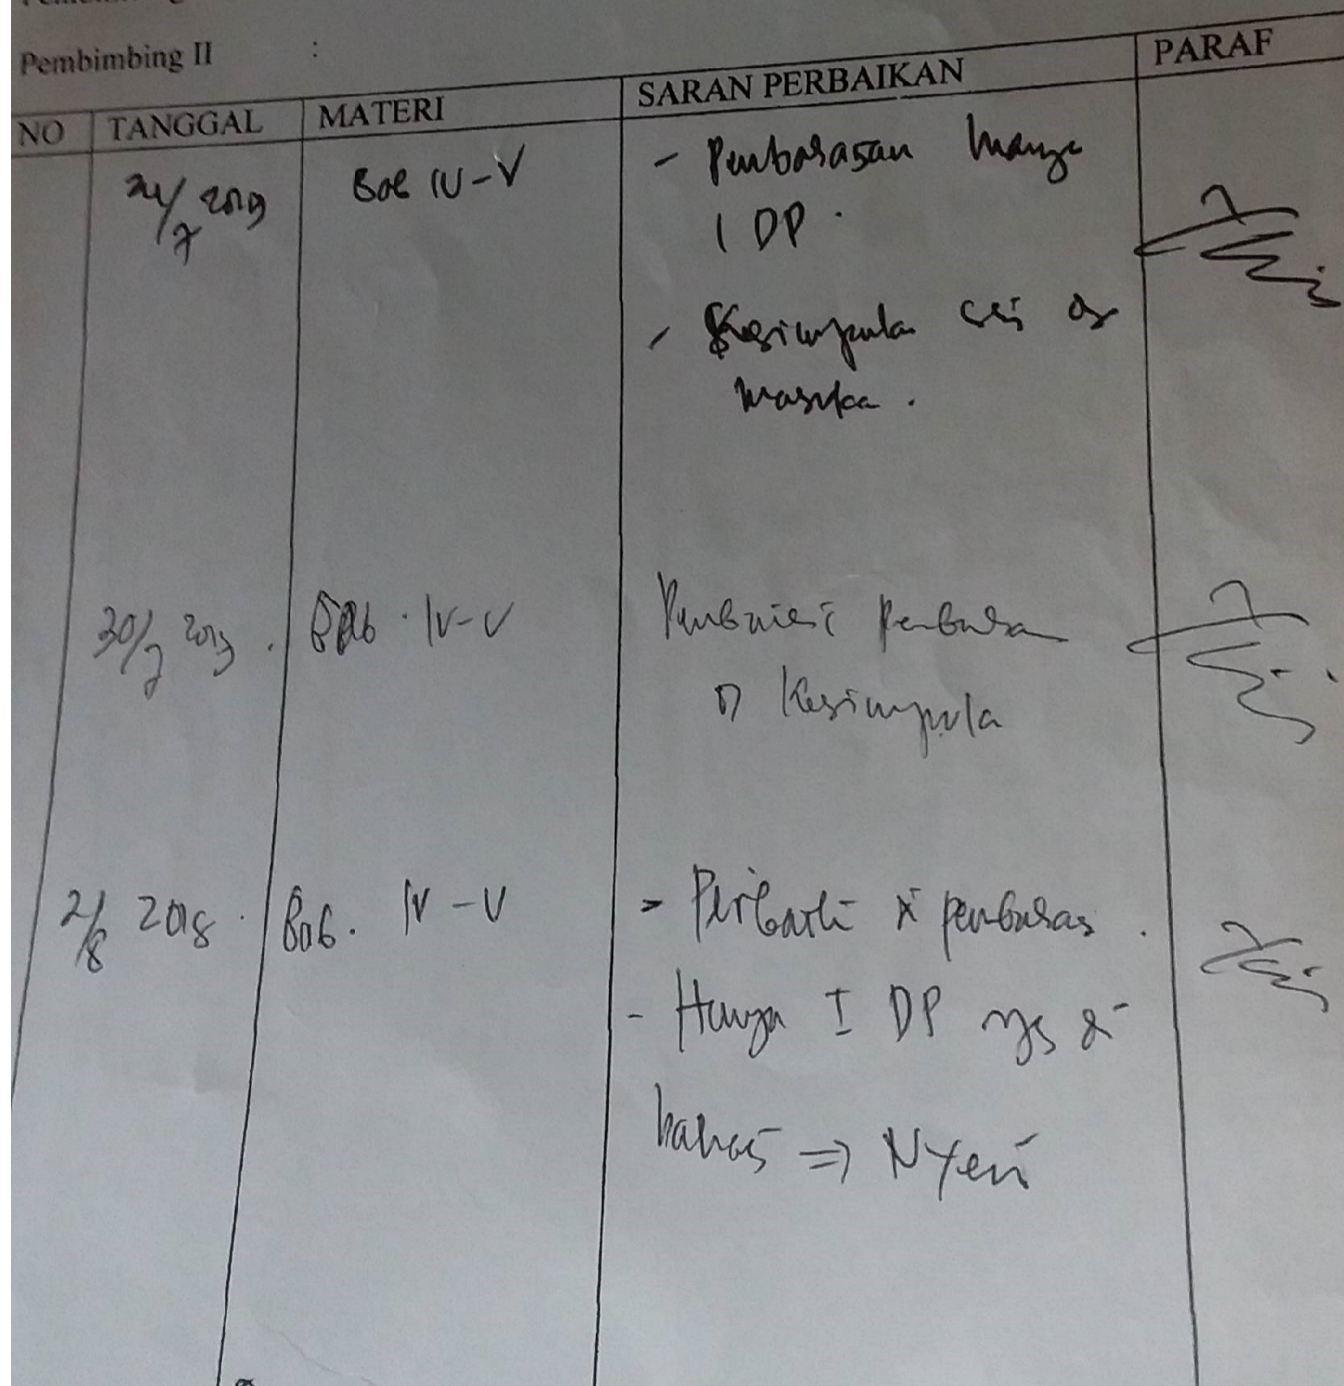 Pembimbing II :
NO TANGGAL MATERI SARAN PERBAIKAN PARAF
24/7 2019 Bab IV-V - Pembahasan hanya
1 DP.
- Kesimpula
masuka.
30/7 2019. Bab. IV-V
Kesimpula
2/8 2018. Bab. IV-V - Perbaiki
- Hanya I DP yg di
bahas => Nyeri